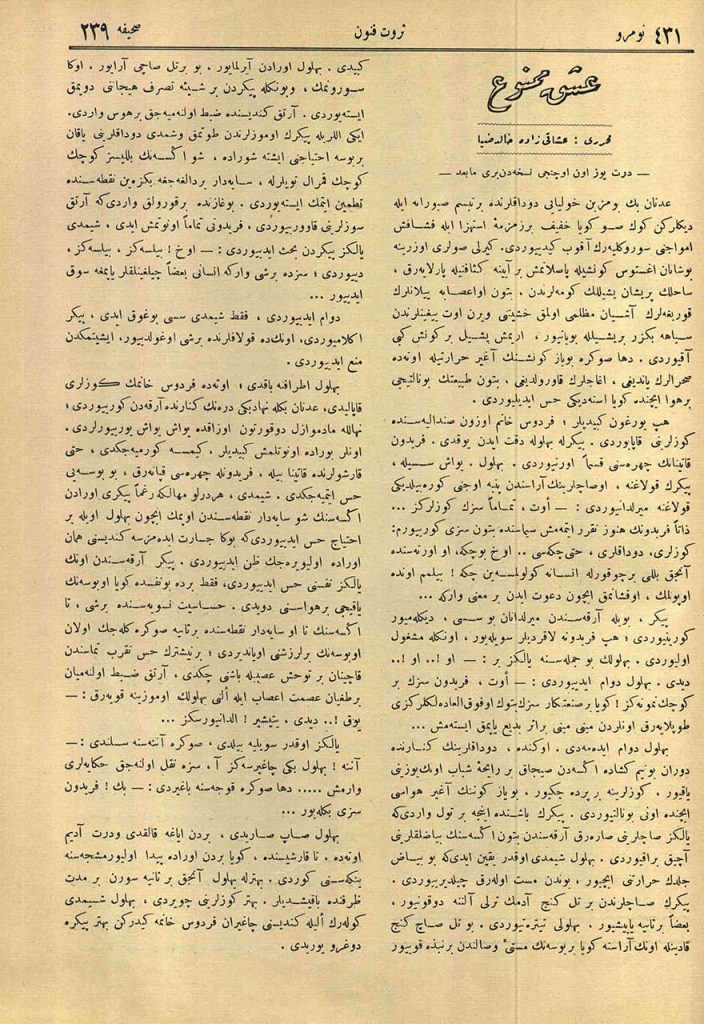 نومرو ٤٣١
ثروت فنون
صحیفه ٢٣٩
عشق ممنوع
محرری : عشاقی زاده خالد ضیا
— درت یوز اون اوچنجی نسخه‌دن‌بری مابعد —
عدنان بك ومزین خولیایی دوداقلرنده برتبسم صبورانه ایله
دیكلركن كوك صو كویا خفیف برزمزمهٔ استهزا ایله فشافش
امواجنی سوروكلیه‌رك آقوب كیدییوردی. كیرلی صولری اوزرینه
بوشانان اغستوس كونشیله پاسلانمش بر آیینه كثافتیله پارلایه‌رق ،
ساحلك پریشان یشیللك كومه‌لرندن ، بتون اواعصابه ییلانلرك
قوریغه‌لرك آشیان مظلمی اولق خشیتی ویرن اوت ییغینلرندن
سیاهه بكزر بریشیللله بویانیور ، اریمش یشیل بر كونش كبی
آقیوردی . دها صوكره بویاز كونشنك آغیر حرارتیله اوته‌ده
صحرالرك یاندیغی ، اغاجلرك قاورولدیغی ، بتون طبیعتك بونالتیجی
برهوا ایچنده كویا اسنه‌دیكی حس ایدیلیوردی .
هپ یورغون كیبدیلر ؛ فردوس خانم اوزون صندالیه‌سنده
كوزلرینی قاپایوردی . پیكرله بهلوله دقت ایدن یوقدی . فریدون
قاتینانك چهره‌سنی قسماً اورتیوردی . بهلول ، یواش سسیله ،
پیكرك قولاغنه ، اوصاچلرینك آراسندن پنبه اوجنی كوره‌بیلدیكی
قولاغنه میرلدانیوردی : — أوت ، تماماً سزك كوزلركز ...
ذاتاً فریدونك هنوز تقرر ایتمه‌مش سیماسنده بتون سزی كورییورم:
كوزلری، دوداقلری ، حتی چكه‌سی .. اوخ بوچكه، او اورته‌سنده
آنجق بللی برچوقورله انسانه كولومسه‌ین چكه ! بیلمم اونده
اوپولمك ، اوقشانمق ایچون دعوت ایدن بر معنی واركه ...
پیكر ، بویله آرقه‌سندن میرلدانان بو سسی ، دیكله‌میور
كورینیوردی ؛ هپ فریدونه لاقردیلر سویله‌یور ، اونكله مشغول
اولیوردی . بهلولك بو جمله‌سنه یالكز بر : — او !.. او !..
دیدی . بهلول دوام ایدییوردی : — أوت ، فریدون سزك بر
كوچك نمونه‌كز ! كویا برصنعتكار سزك‌بتون اوفوق‌العاده‌لكلركزی
طوپلایه‌رق اونلردن مینی مینی براثر بدیع یاپمق ایسته‌مش ...
بهلول دوام ایده‌مه‌دی . اوكنده ، دوداقلرینك كنارنده
دوران بونیم كشاده اكسه‌دن صیجاق بر رایحهٔ شباب اونك‌یوزینی
یاقیور ، كوزلرینه برپرده چكیور ، بویاز كوننك آغیر هواسی
ایچنده اونی بونالتیوردی . پیكرك باشنده اینجه بر تول واردی‌كه
یالكز صاچلرینی صاره‌رق آرقه‌سندن بتون اكسه‌سنك بیاضلقلرینی
آچیق براقیوردی . بهلول شیمدی اوقدر یقین ایدی‌كه بو بیاض
جلدك حرارتنی ایچیور ، بوندن مست اوله‌رق چیلدیرییوردی .
پیكرك صاچلرندن بر تل كنج آدمك ترلی آلننه دوقونیور ،
بعضاً برثانیه یاپیشیور . بهلولی تیتره‌تیوردی . بو تل صاچ كنج
قادینله اونك آراسنه كویا بربوسه‌نك مستئ وصالندن برنبذه قوییور
كبیدی . بهلول اورادن آیرلمایور ، بو برتل صاچی آرایور ، اوكا
سورونمك ، وبونكله پیكردن بر شیئه تصرف هیجاننی دویمق
ایسته‌یوردی . آرتق كندیسنده ضبط اولنه‌میه‌جق برهوس واردی.
ایكی اللریله پیكرك اوموزلرندن طوتمق وشمدی دوداقلرینی یاقان
بربوسه احتیاجنی ایشته شوراده ، شو اكسه‌نك بللیسز كوچك
كوچك قمرال تویلرله ، سایه‌دار بردالغه‌جغه بكزه‌ین نقطه‌سنده
تطمین ایتمك ایسته‌یوردی . بوغازنده برقورولق واردی‌كه آرتق
سوزلرینی قاووریوردی، فریدونی تماماً اونوتمش ایدی ، شیمدی
یالكز پیكردن بحث ایدییوردی : — اوخ ! بیلسه‌كز ، بیلسه‌كز ،
دییوردی ؛ سزده برشی واركه انسانی بعضاً چیلغینلقلر یاپمغه سوق
ایدییور ...
دوام ایدییوردی ، فقط شیمدی سسی بوغوق ایدی ، پیكر
اكلامیوردی، اونك‌ده قولاقلرنده برشی اوغولدییور، ایشیتمكدن
منع ایدییوردی .
بهلول اطرافنه باقدی ؛ اوته‌ده فردوس خانمك كوزلری
قاپالیدی، عدنان بكله نهادبكی دره‌نك كنارنده آرقه‌دن كورییوردی ؛
نهالله مادموازل دوقورتون اوزاقده یواش یواش یورییورلردی .
اونلر بوراده اونوتلمش كیبدیلر ، كیمسه كورمیه‌جكدی ، حتی
قارشولرنده قاتینا بیله ، فریدونله چهره‌سی قپانه‌رق ، بو بوسه‌یی
حس ایتمیه‌جكدی . شیمدی ، هردرلو مهالكه رغماً پیكری اورادن
اكسه‌سنك شو سایه‌دار نقطه‌سندن اوپمك ایچون بهلول اویله بر
احتیاج حس ایدییوردی‌كه بوكا جسارت ایده‌مزسه كندیسنی همان
اوراده اولیویره‌جك ظن ایدییوردی . پیكر آرقه‌سندن اونك
یالكز نفسنی حس ایدییوردی، فقط برده بونفسده كویا اوبوسه‌نك
یاقیجی برهواسنی دویدی . حساسیت نسویه‌سنده برشی ، تا
اكسه‌سنك تا او سایه‌دار نقطه‌سنده برثانیه صوكره كله‌جك اولان
اوبوسه‌نك برلرزشنی اویاندیردی ؛ برنیشترك حس تقرب تماسندن
قاچینان بر توحش عصبیله باشنی چكدی ، آرتق ضبط اولنه‌میان
برطغیان عصمت اعصاب ایله ألنی بهلولك اوموزینه قویه‌رق : —
یوق !.. دیدی ، یتیشیر ! الدانیورسكز ...
یالكز اوقدر سویلیه بیلدی ، صوكره آننه‌سنه سسلندی : —
آننه ! بهلول بكی چاغیرسه‌كز آ ، سزه نقل اولنه‌جق حكایه‌لری
وارمش ..... دها صوكره قوجه‌سنه باغیردی : — بك ! فریدون
سزی بكله‌یور ...
بهلول صاپ صاریدی ، بردن ایاغه قالقدی ودرت آدیم
اوته‌ده . تا قارشیسنده ، كویا بردن اوراده پیدا اولیورمشجه‌سنه
ینكه‌سنی كوردی . بهترله بهلول آنجق بر ثانیه سورن بر مدت
ظرفنده باقیشدیلر . بهتر كوزلرینی چویردی ، بهلول شیمدی
كوله‌رك ألیله كندیسنی چاغیران فردوس خانمه كیدركن بهتر پیكره
دوغرو یوریدی .